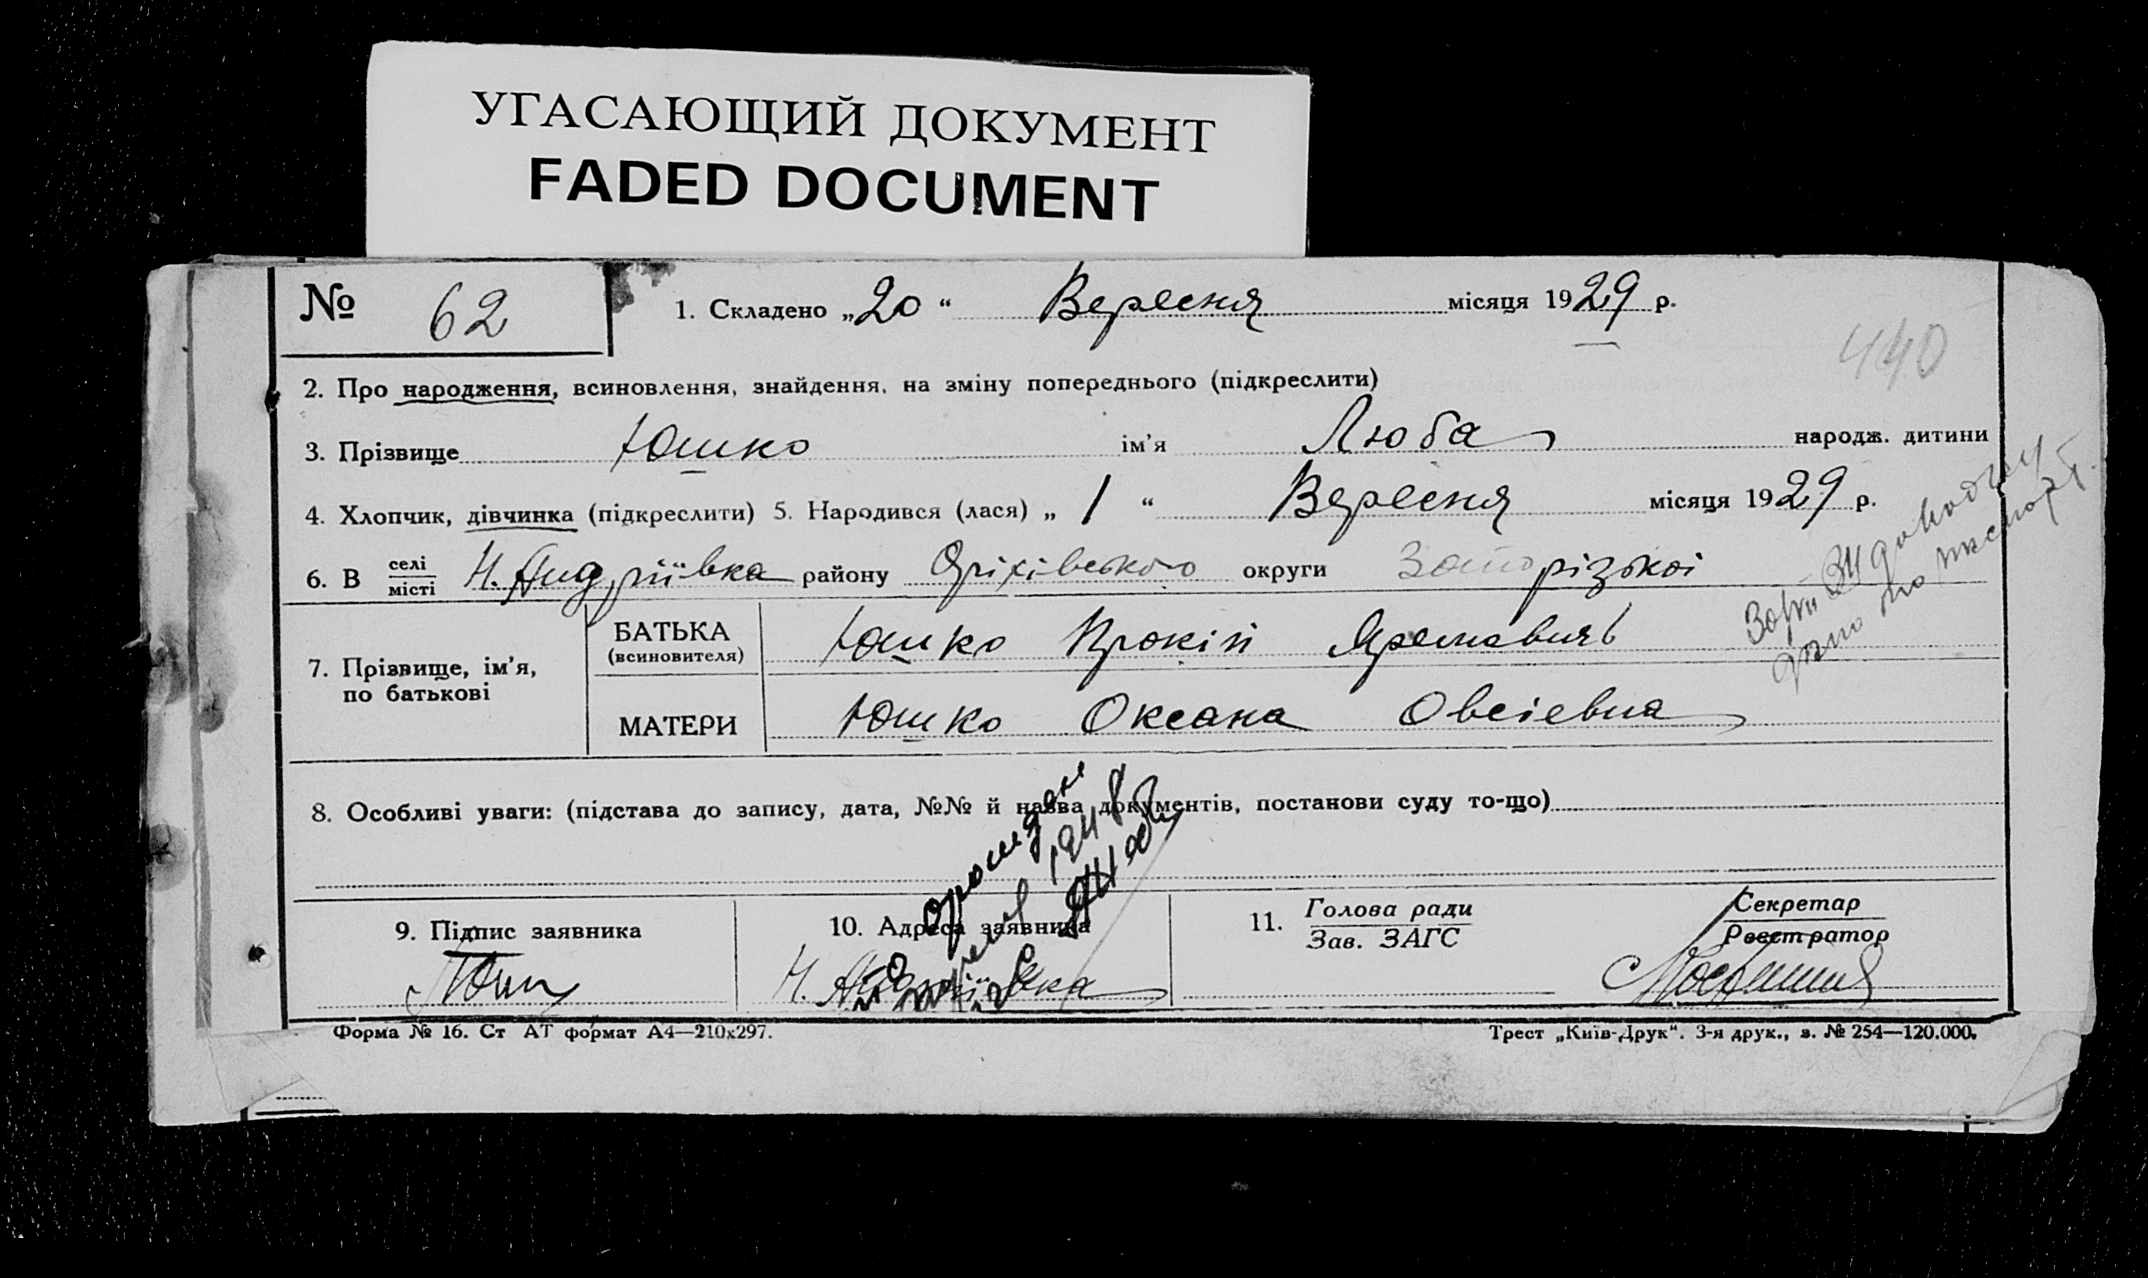 УГАСАЮЩИЙ ДОКУМЕНТ
FADED DOCUMENT
№ 62
1. Складено „20“ Вересня місяця 1929 р.
440
2. Про народження, всиновлення, знайдення, на зміну попереднього (підкреслити)
3. Прізвище Юшко ім’я Люба народж. дитини
4. Хлопчик, дівчинка (підкреслити) 5. Народився (лася) „1“ Вересня місяця 1929 р.
6. В селі місті Н. Андріївка району Оріхівського округи Запорізької
7. Прізвище, ім’я, по батькові
БАТЬКА (всиновителя) Юшко Прокіп Яремович
МАТЕРИ Юшко Оксана Овсієвна
8. Особливі уваги: (підстава до запису, дата, №№ й назва документів, постанови суду то-що)
9. Підпис заявника
10. Адреса заявника
Н. Андріївка
11. Голова ради
Зав. ЗАГС
Секретар
Реєстратор
Форма № 16. Ст АТ формат А4—210х297.
Трест „Київ-Друк“. 3-я друк., з. № 254—120.000.